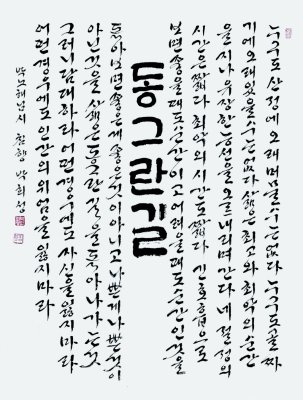 누구도 산정에 오래 머물 수는 없다 누구도 골짜
기에 오래 있을 수는 없다 삶은 최고와 최악의 순간
을 지나 유장한 능선을 오르내리며 간다 네 절정의
시간은 짧다 최악의 시간도 짧다 긴 호흡으로
보면 좋을 때도 순간이고 어려울 때도 순간인 것을
동그란길
돌아보면 좋은게 좋은것이 아니고 나쁜게 나쁜것이
아닌것을 삶은 동그란 길을 돌아 나가는 것
그러니 담대하라 어떤 경우에도 자신을 잃지 마라
어떤 경우에도 인간의 위엄을 잃지 마라
박노해님 시 박희선